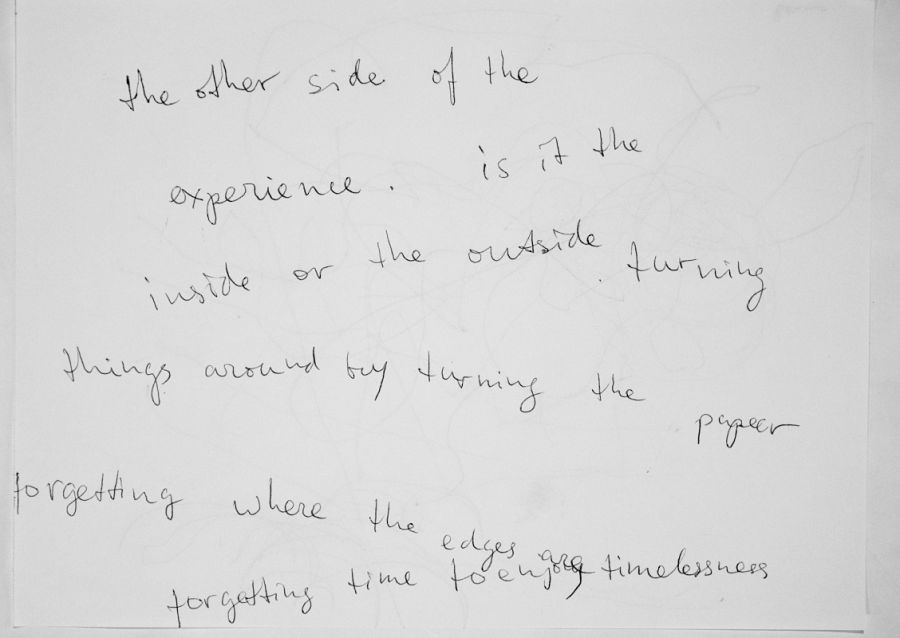 the other side of the
experience. is it the
inside or the outside. turning
things around by turning the
papeer
forgetting where the
edges are
forgetting time to enjoy timelessness